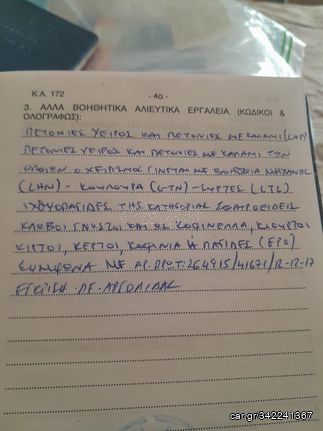 Κ.Α. 172 - 4α -
3. ΑΛΛΑ ΒΟΗΘΗΤΙΚΑ ΑΛΙΕΥΤΙΚΑ ΕΡΓΑΛΕΙΑ (ΚΩΔΙΚΟΙ &
ΟΛΟΓΡΑΦΩΣ):
ΠΕΤΟΝΙΕΣ ΧΕΙΡΟΣ ΚΑΙ ΠΕΤΟΝΙΕΣ ΜΕ ΚΑΛΑΜΙ (LHP)
ΠΕΤΟΝΙΕΣ ΧΕΙΡΟΣ ΚΑΙ ΠΕΤΟΝΙΕΣ ΜΕ ΚΑΛΑΜΙ ΤΩΝ
ΟΠΟΙΩΝ Ο ΧΕΙΡΙΣΜΟΣ ΓΙΝΕΤΑΙ ΜΕ ΒΟΗΘΕΙΑ ΜΗΧΑΝΗΣ
(LHM) - ΚΟΥΛΟΥΡΑ (GTN) - ΣΥΡΤΕΣ (LTL)
ΙΧΘΥΟΠΑΓΙΔΕΣ ΤΗΣ ΚΑΤΗΓΟΡΙΑΣ ΣΦΑΙΡΟΕΙΔΕΙΣ
ΚΛΩΒΟΙ ΓΝΩΣΤΟΙ ΚΑΙ ΩΣ ΚΟΦΙΝΕΛΛΑ, ΚΙΟΥΡΤΟΙ
ΚΙΡΤΟΙ, ΚΕΡΤΟΙ, ΚΟΦΙΝΙΑ Ή ΠΑΓΙΔΕΣ (FPO)
ΣΥΜΦΩΝΑ ΜΕ ΑΡ. ΠΡΩΤ: 264915/41671/12-12-17
ΕΓΚΡΙΣΗ Π.Ε. ΑΡΓΟΛΙΔΑΣ
car.gr/342241367